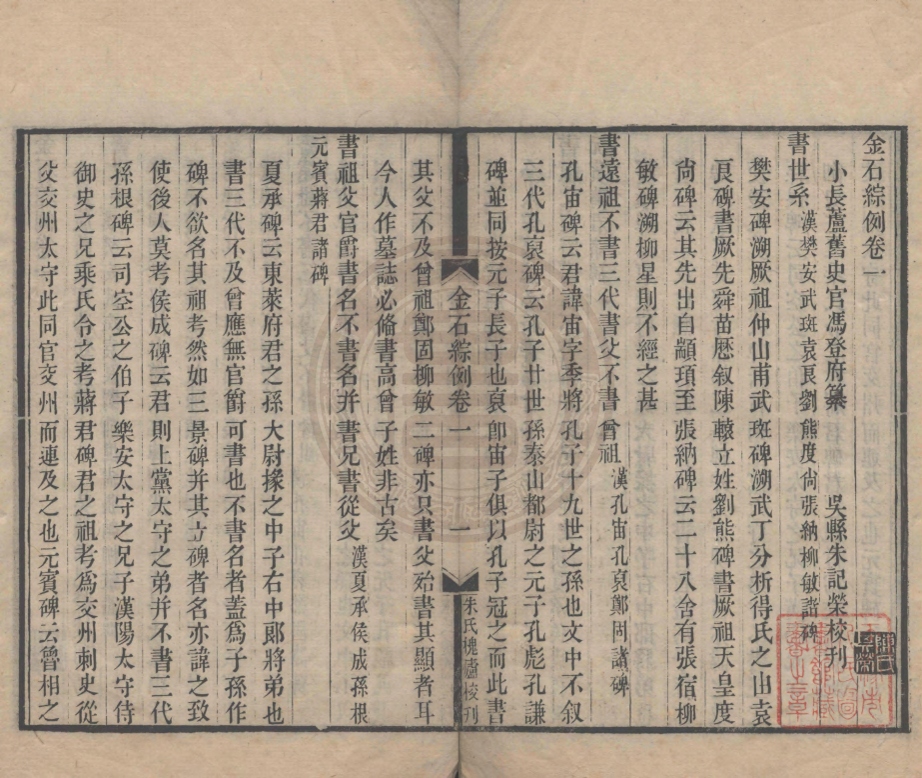 金石綜例卷一
小長蘆舊史官馮登府纂　吳縣朱記榮校刋
書世系漢樊安武斑袁良劉熊度尙張納柳敏諸碑
樊安碑溯厥祖仲山甫武斑碑溯武丁分析得氏之山袁
良碑書厥先舜苗歷叙陳轅立姓劉熊碑書厥祖天皇度
尙碑云其先出自顓頊至張納碑云二十八舍有張宿柳
敏碑溯柳星則不經之甚
書遠祖不書三代書父不書曾祖漢孔宙孔裒鄭固諸碑
孔宙碑云君諱宙字季將孔子十九世之孫也文中不叙
三代孔裒碑云孔子廿世孫泰山都尉之元子孔彪孔謙
碑並同按元子長子也裒卽宙子俱以孔子冠之而此書
金石綜例卷一
一
朱氏槐廬校刋
其父不及曾祖鄭固柳敏二碑亦只書父殆書其顯者耳
今人作墓誌必偹書高曾子姓非古矣
書祖父官爵書名不書名并書兄書從父漢夏承侯成孫根
元賓蔣君諸碑
夏承碑云東萊府君之孫大尉掾之中子右中郞將弟也
書三代不及曾應無官爵可書也不書名者蓋爲子孫作
碑不欲名其祖考然如三景碑并其立碑者名亦諱之致
使後人莫考侯成碑云君則上黨太守之弟并不書三代
孫根碑云司空公之伯子樂安太守之兄子漢陽太守侍
御史之兄乘氏令之考蔣君碑君之祖考爲交州刺史從
父交州太守此同官交州而連及之也元賓碑云曾相之